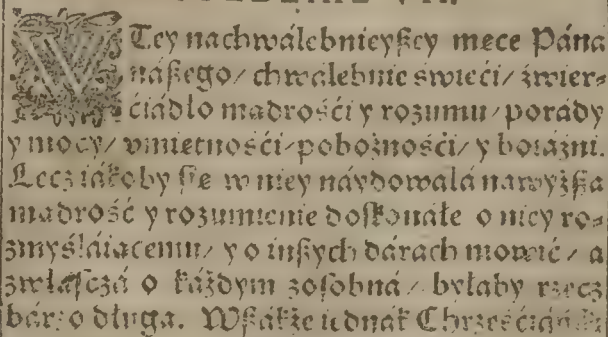 W Tey nachwálebnieyßey męce Páná
náßego/ chwálebnie świeći/ źwier-
ćiádło mądrośći y rozumu/ porády
y mocy/ vmieiętnośći/ pobożnośći/ y boiáźni.
Lecz iákoby się w niey náydowałá nawyżßa
mądrość y rozumienie doskonáłe o niey ro-
zmyśláiącemu/ y o inßych dárách mowić/ a
zwłasczá o káżdym zosobná/ byłáby rzecz
bárzo długa. Wßákże iednák